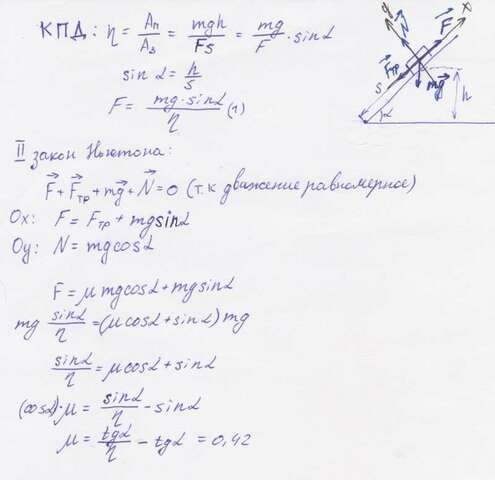 КПД: η = Aп/Aз = mgh/Fs = mg/F · sinα
sinα = h/s
F = mg·sinα/η (1)
II закон Ньютона:
F⃗ + F⃗тр + mg⃗ + N⃗ = 0 (т.к движение равномерное)
Ox: F = Fтр + mgsinα
Oy: N = mgcosα
F = μmgcosα + mgsinα
mg sinα/η = (μcosα + sinα)mg
sinα/η = μcosα + sinα
(cosα)·μ = sinα/η - sinα
μ = tgα/η - tgα = 0,42
y
N⃗
F⃗
x
F⃗тр
mg⃗
s
h
α